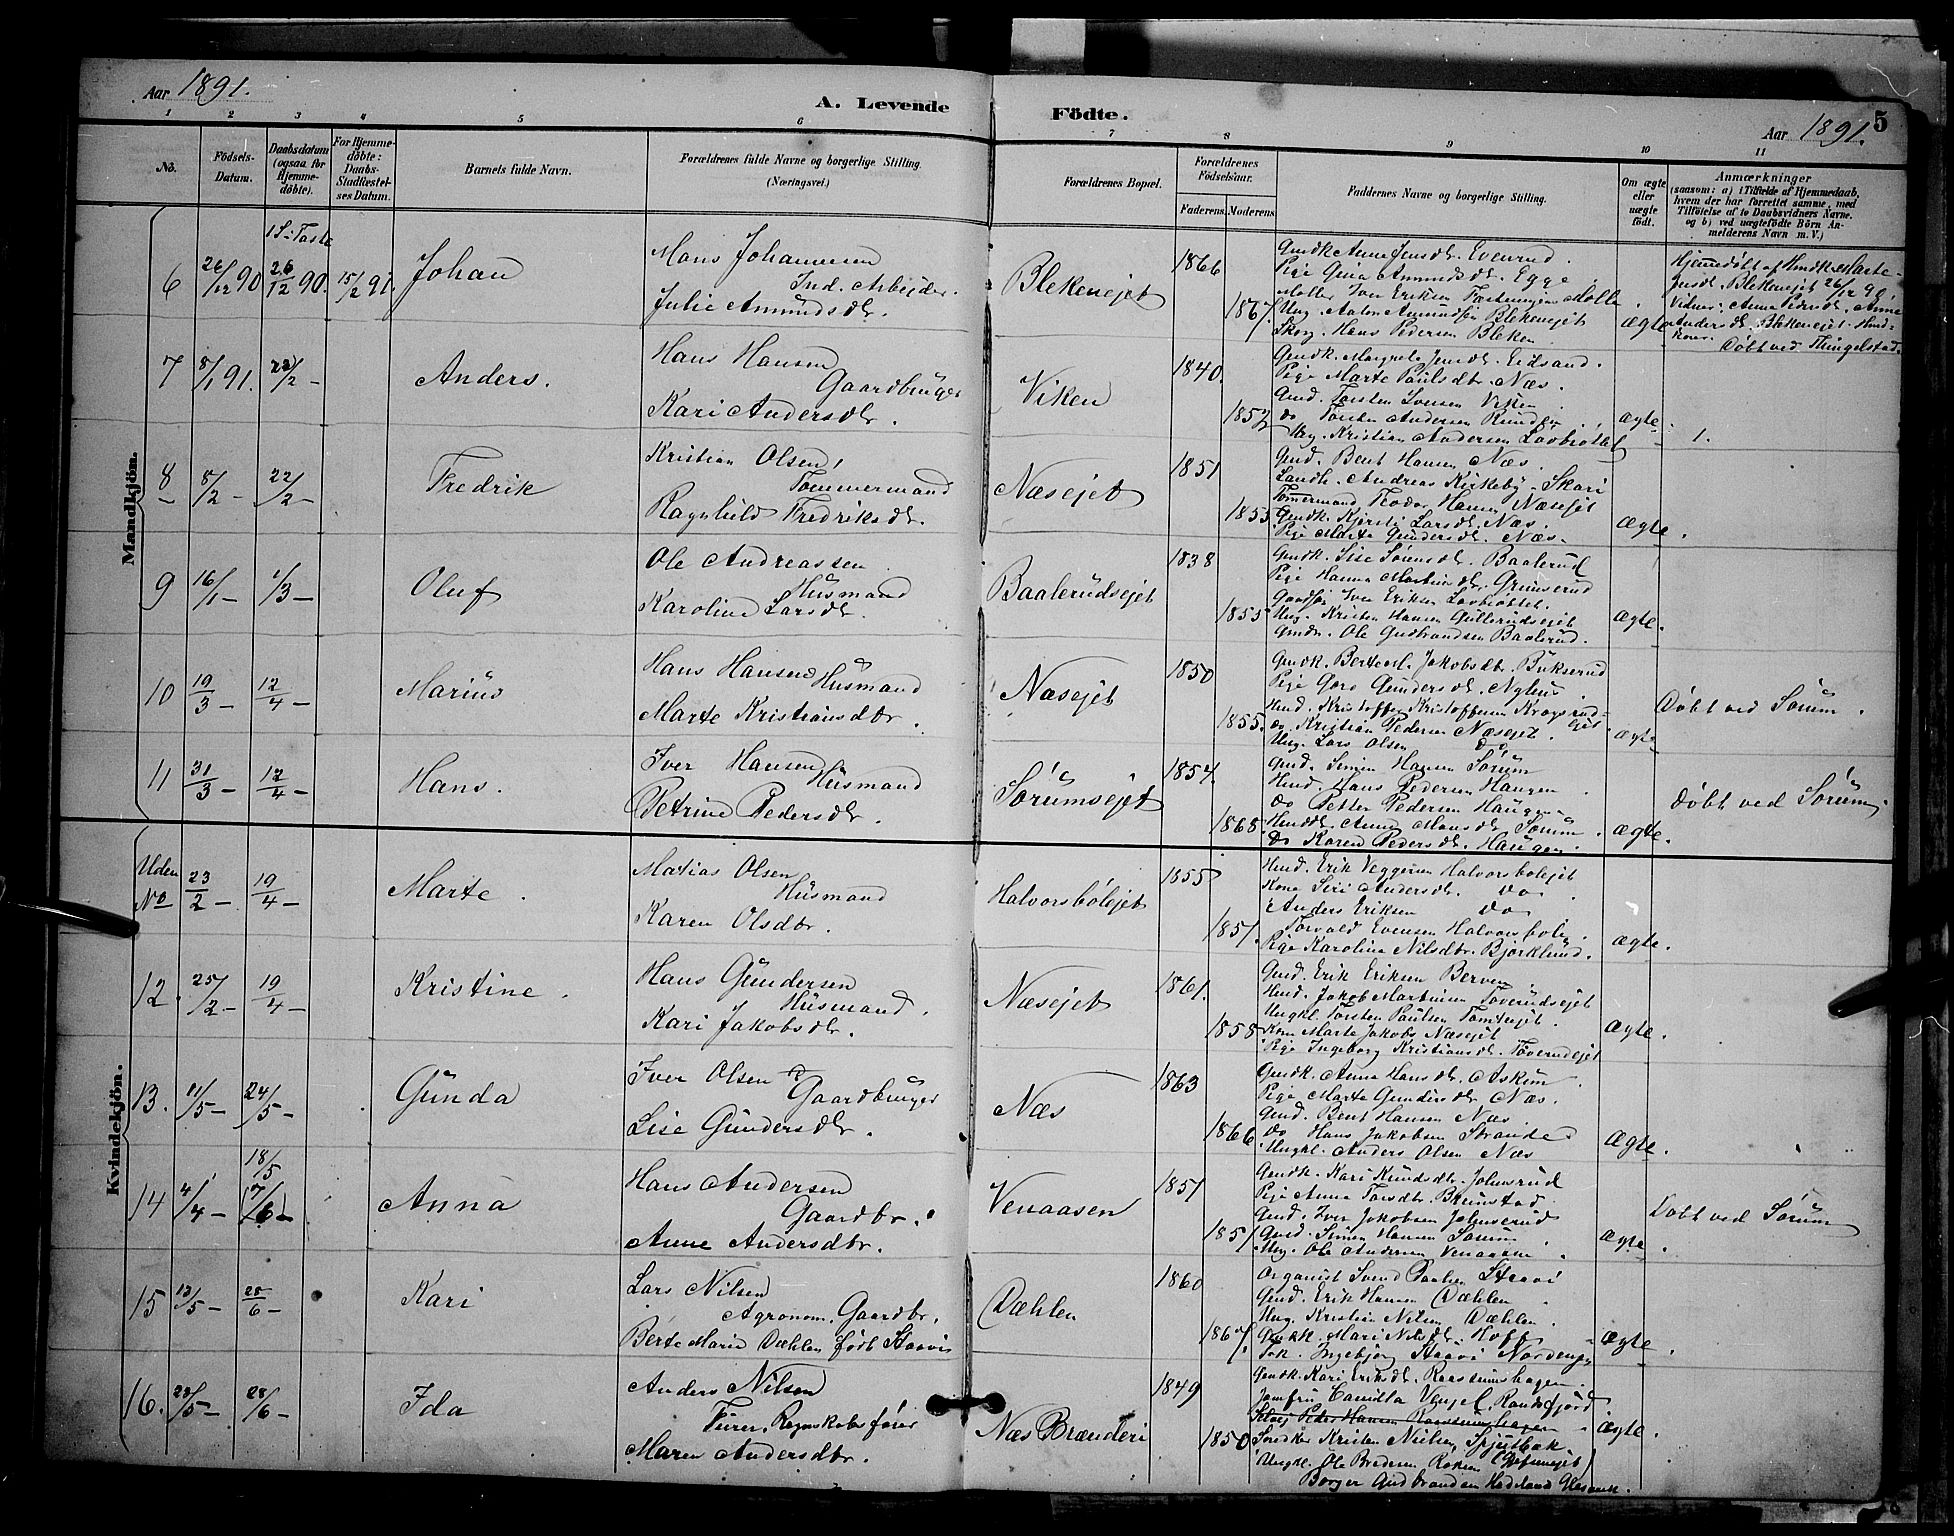 Aar 1891.
A. Levende
Födte.
Aar 1891.
5
1 2 3 4 5 6 7 8 9 10 11
No.
Födsels-Datum.
Daabsdatum (ogsaa for Hjemmedöbte).
For Hjemmedöbte: Daabs-Stadfæstelses Datum.
Barnets fulde Navn.
Forældrenes fulde Navne og borgerlige Stilling. (Næringsvei.)
Forældrenes Bopæl.
Forældrenes Födselsaar.
Faderens. Moderens.
Faddernes Navne og borgerlige Stilling.
Om ægte eller uægte födt.
Anmærkninger
(saasom: a) i Tilfælde af Hjemmedaab, hvem der har forrettet samme, med Tilföielse af to Daabsvidners Navne, og b) ved uægtefödte Börn Anmelderens Navn m. V.)
Mandkjön.
1 S. i Faste
6 26/12 90 26/12 90. 15/2 91. Johan
Hans Johannesen
Ind. Arbejder.
Julie Amundsdr.
Blekenejet
1866
1867.
Gmdk Anne Jensdr. Evenrud.
Pige Gina Amundsdr. Egge
Møller Iver Eriksen
Ung. Anton Amundsen Blekenejet
Skog. Hans Pedersen Bleken
ægte
Hjemmedøbt af Hmdk. Marte
Jensdr. Blekenejet 26/12 90,
Vidner: Anna Pedersdr. Anne
Andersdr. Blekenejet. Hmd-
koner. Døbt ved Thingelstad.
7 8/1 91. 22/2 - Anders.
Hans Hansen
Gaardbruger
Kari Andersdr.
Viken
1840.
1852
Gmdk. Margrete Jensdr. Eidsand.
Pige Marte Paulsdtr. Næs.
Gmd. Torsten Iversen Viken
do Torsten Andersen Runden
Ung. Kristian Andersen Løvbrøttet
ægte.
1.
8 8/2 - 22/2 - Fredrik
Kristian Olsen,
Tømmermand
Ragnhild Fredriksdr.
Næsejet
1851
1853
Gmd. Bent Hansen Næs.
Landh. Andreas Kirkeby - Skari
Tømmermand Teodor Hansen Næsejet
Gmdk. Kjersti Larsdr. Næs.
Pige Marte Gundersdr. Næs.
ægte.
9 16/1 - 1/3 - Oluf
Ole Andreassen
Husmand
Karoline Larsdr.
Baalerudsejet
1838
1855
Gmdk. Lise Sørensdr. Baalerud
Pige Hanna Martinsdr. Grinserud
Iver Eriksen Løvbrøttet.
Ung. Kristen Hansen Gullerudsejet
Gmdr. Ole Gudbrandsen Baalerud.
ægte.
10 19/3 - 12/4 - Marius
Hans Hansen
Husmand
Marte Kristiansdtr.
Næsejet
1850
1855.
Gmdk. Berte M. Jakobsdtr. Bukserud
Pige Goro Gundersdr. Nyhus.
Hmd. Kristoffer Kristoffersen Krogsrud-
ejet
do Kristian Pedersen Næsejet.
Ung. Lars Olsen do
ægte
Døbt ved Sørum.
11 31/3 - 12/4 - Hans.
Iver Hansen
Husmand
Petrine Pedersdr.
Sørumsejet
1854.
1868.
Gmd. Simen Hansen Sørum
Hmd. Hans Pedersen Haugen
do Petter Pedersen Haugen
Hmddt. Anne Hansdr. Sørum.
Do Karen Pedersdr. Haugen.
ægte.
Døbt ved Sørum
Kvindekjön.
Uden No 23/2 - 19/4 - Marte.
Matias Olsen
Husmand
Karen Olsdtr.
Halvorsbølejet
1855
1851.
Hmd. Erik Veggersen Halvorsbølejet
Kone Siri Andersdr. do
Anders Eriksen do
Torvald Evensen Halvorsbøle
Pige Karoline Nilsdtr. Bjørklund.
ægte.
12. 25/2 - 19/4 - Kristine.
Hans Gundersen
Husmand.
Kari Jakobsdr.
Næsejet
1861.
1858.
Gmd. Erik Eriksen Berven
Hmd. Jakob Martinsen Toverudsejet
Ungkl. Torsten Paulsen Tomtejet.
Kone Marte Jakobs Næsejet
Pige Ingeborg Kristiansdr. Toverudejet
ægte.
13. 11/5 - 24/5 - Gunda
Iver Olsen
Gaardbruger
Lise Gundersdr.
Næs
1863
1866.
Gmdk. Anna Hansdr. Askim
Pige Marte Gundersdr. Næs.
Gmd. Bent Hansen Næs
do Hans Jakobsen Strande
Ungkl. Anders Olsen Næs
ægte.
14 4/4 - 18/5 (7/6) - Anna
Hans Andersen
Gaardbr.
Anne Andersdtr.
Venaasen
1851
1851
Gmdk. Kari Knudsdr. Johnsrud
Pige Anna Torsdtr. Brunstad
Gmd. Iver Jakobsen Johnserud
Gmd. Simen Hansen Sørum
Ung. Ole Andersen Venaasen.
ægte
Døbt ved Sørum
15 13/5 - 28/6 - Kari
Lars Nilsen
Agronom, Gaardbr.
Berte Marie Dæhlen født Staavi
Dæhlen
1860
1867.
Organist Svend Paulsen Staavi
Gmd. Erik Hansen Dæhlen
Ung. Kristian Nilsen Dæhlen.
Gmdk. Mari Nilsdr. Hoff
Frk. Ingebjør Staavi Nordengen
ægte.
16. 23/5 - 28/6 - Ida
Anders Nilsen
Furer, Regnskabsfører
Maren Andersdtr.
Næs Brænderi
1849
1850
Gmdk. Kari Eriksdr. Raassumshagen
Jomfru Camilla Vogel, Randsfjord
Selvej Peder Hansen Raassumshagen
Snedker Kristen Nielsen Spjutbak
Ungkl. Ole Bredesen Røken
Borger Gudbrandsen Hadeland Glasværk.
ægte.